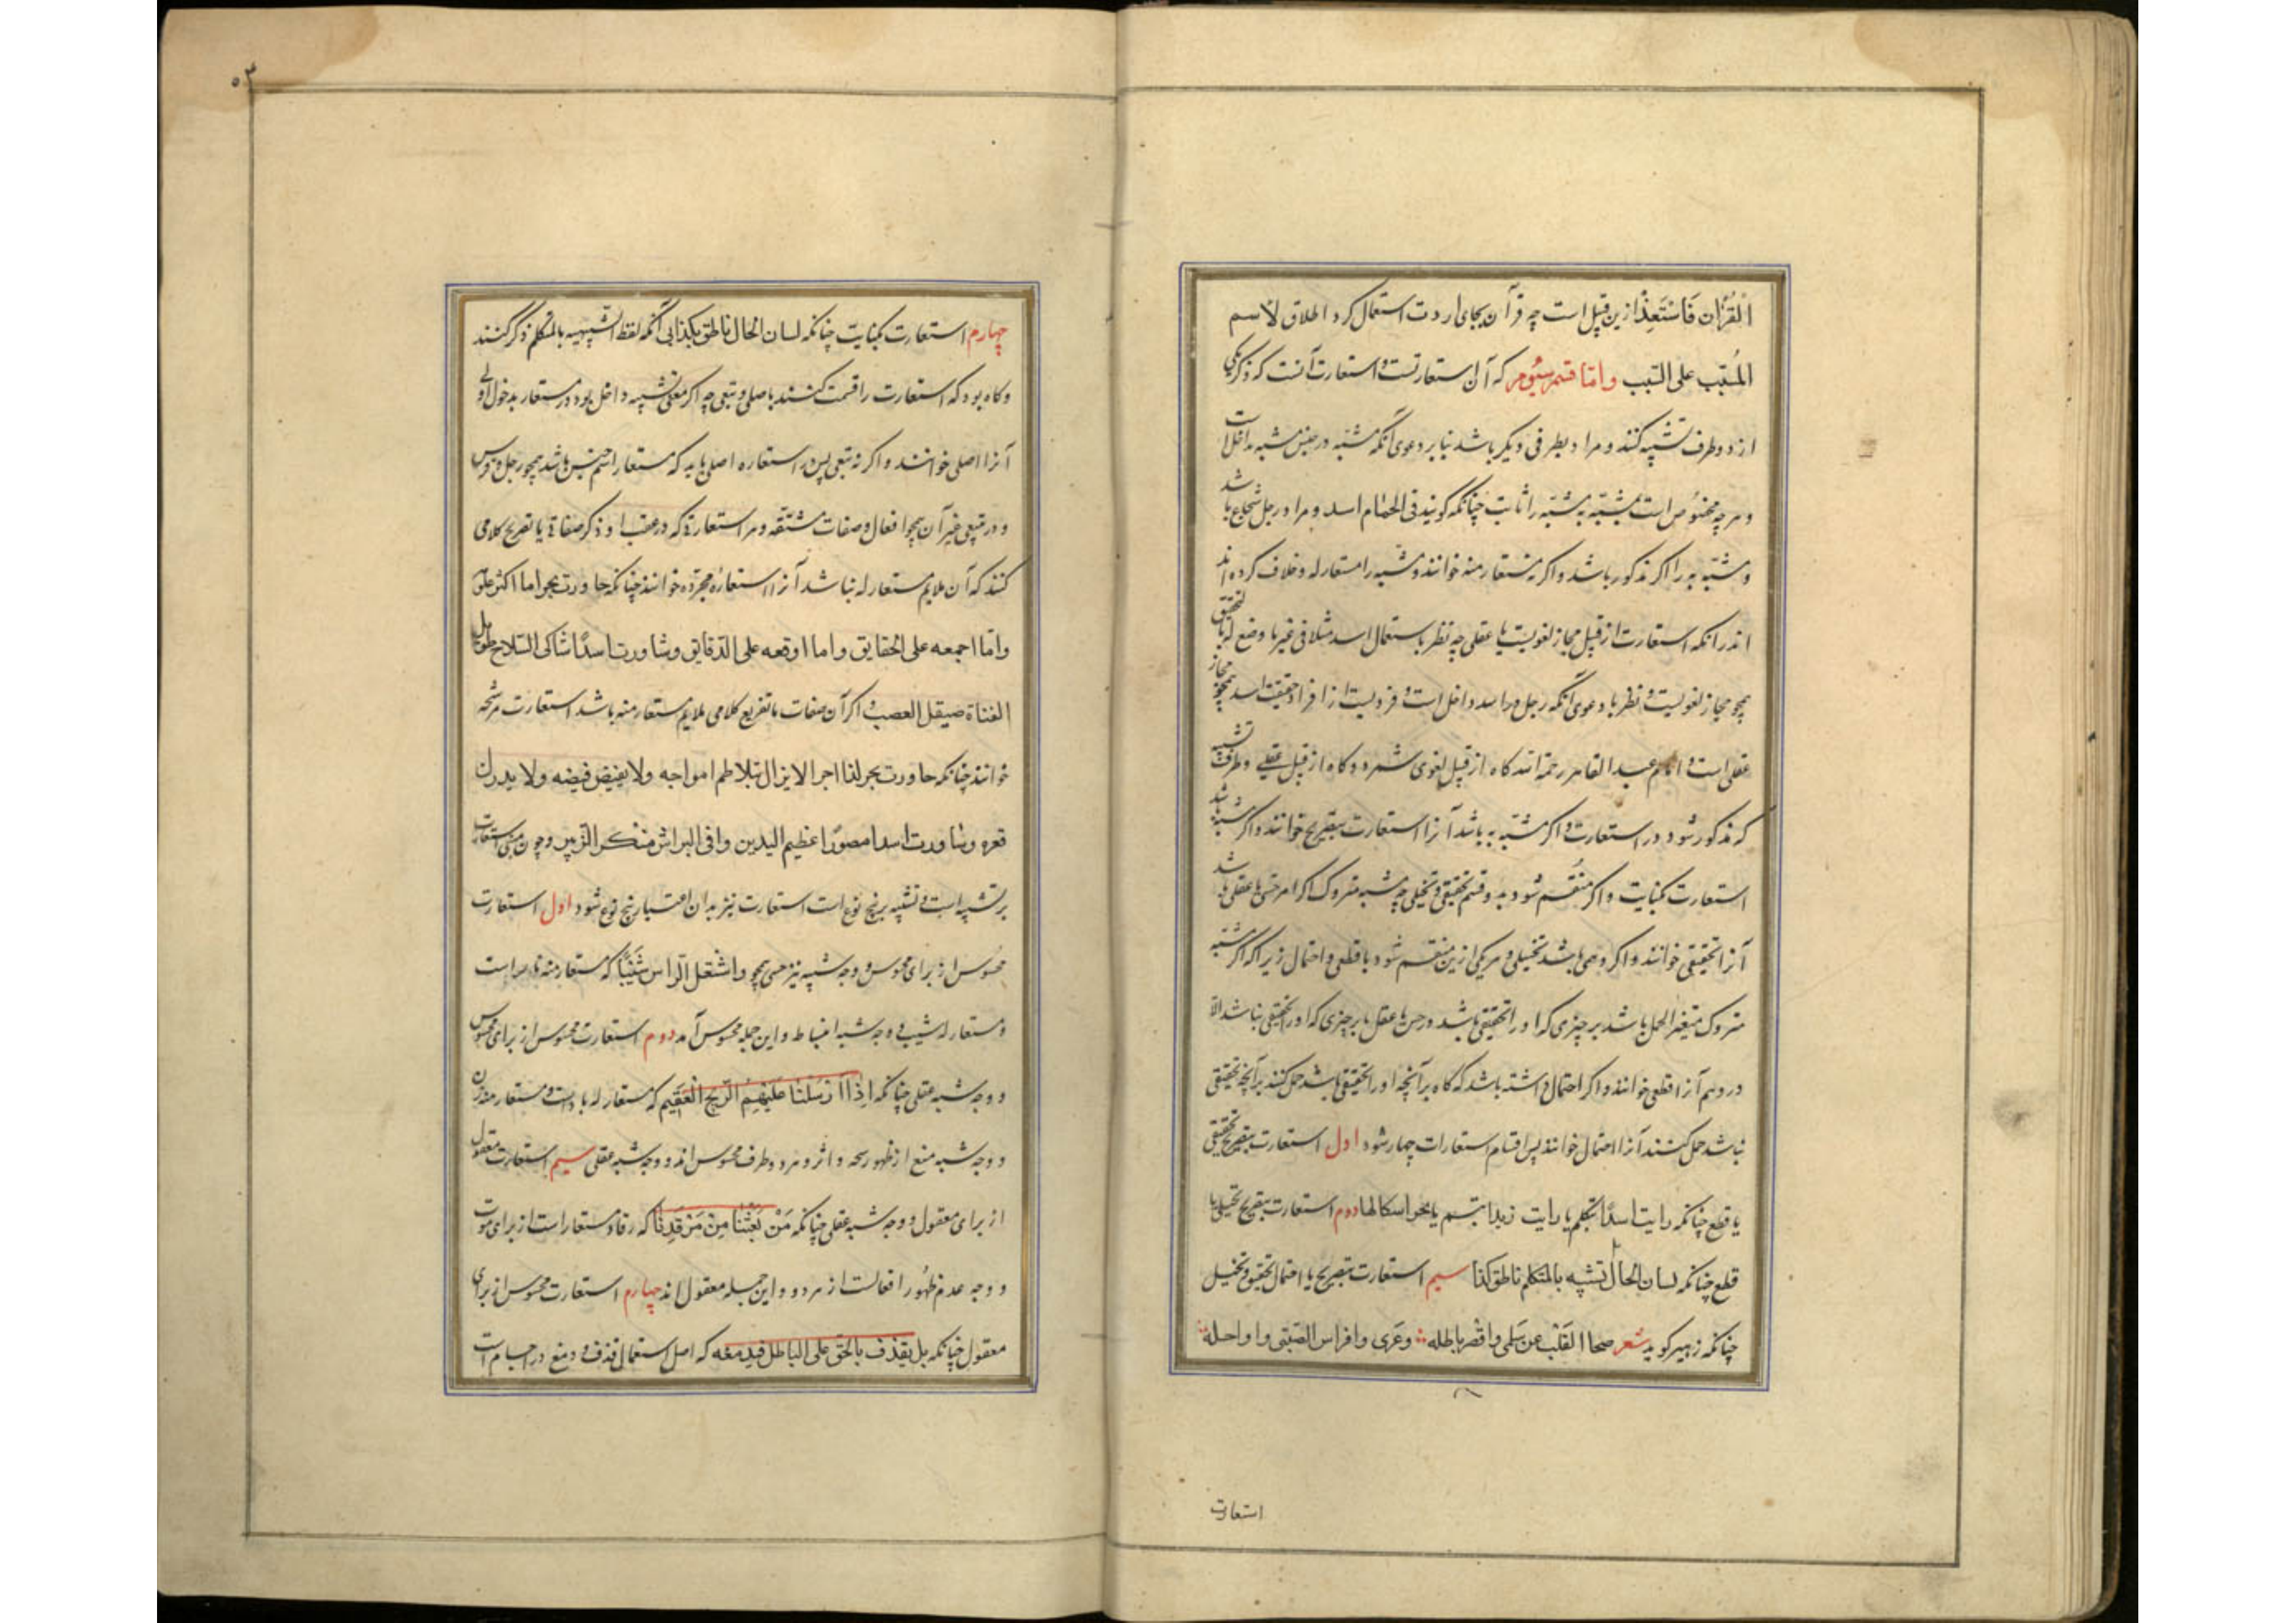 الْقُرْآن فَاسْتَعِذْ ازین قبیل است چه قرآن بجای اردت استعمال کرد اطلاق لاسم
المُسَبَّب علی السبب واما قسم سیوم که آن استعارتست و استعارت آنست که ذکر یکی
از دو طرف تشبیه کنند و مراد بطرفی دیگر باشد بنا بر دعوی آنکه مشبه در جنس مشبه به داخل است
و هرچه مخصوص است بمشبه به مشبه را ثابت چنانکه گویند فی الحمام اسد و مراد رجل شجاع باشد
و مشبه به را اگر مذکور باشد و اگر نه مستعار منه خوانند و مشبه را مستعار له و خلاف کرده‌اند
اندر آنکه استعارت از قبیل مجاز لغویست یا عقلی چه نظر باستعمال اسد مثلا فی غیر ما وضع له بالتحقیق
همچو مجاز لغویست و نظر با دعوی آنکه رجل در اسد داخل است و فردیست از افراد حقیقت اسد همچو مجاز
عقلی است و امام عبد القاهر رحمة الله گاه از قبیل لغوی شمرد و گاه از قبیل عقلی و طرف تشبیه
که مذکور شود در استعارت و اگر مشبه به باشد آنرا استعارت بتصریح خوانند و اگر مشبه باشد
استعارت بکنایت و اگر منقسم شود بدو قسم تحقیقی و تخیلی چه مشبه متروک اگر امر حسی یا عقلی باشد
آنرا تحقیقی خوانند و اگر وهمی باشد تخیلی و هر یکی ازین منقسم شود با قطعی و احتمال زیرا که اگر مشبه
متروک متعین الحمل باشد بر چیزی که او را تحقیقی باشد در حس یا عقل یا بر چیزی که او را تحقیقی نباشد الا
در وهم آنرا قطعی خوانند و اگر احتمال داشته باشد که گاه بر آنچه او را تحقیقی باشد حمل کنند بر آنچه تحقیقی
نباشد حمل کنند آنرا احتمال خوانند پس اقسام استعارات چهار شود اول استعارت بتصریح تحقیقی
با قطع چنانکه رایت اسدًا یتکلم یا رایت زیدا تبسم دوم استعارت بتصریح تخیلی با
قطع چنانکه لسان الحال تشبیه بالمتکلم ناطق کذا سیم استعارت بتصریح با احتمال تحقیق و تخییل
چنانکه زهیر گوید شعر صحا القلب عن سلمی واقصر باطله وعری وافراس الصبی ورواحله
استعارت
۵۳
چهارم استعارت بکنایت چنانکه لسان الحال ناطق بکذا بی آنکه لفظ التشبیه بالمتکلم ذکر کنند
و گاه بود که استعارت را قسمت کنند باصلی و تبعی چه اگر معنی تشبیه داخل بود در مستعار بدخول اولی
آنرا اصلی خوانند و اگر نه تبعی پس در استعاره اصلی باید که مستعار اسم جنس باشد همچو رجل و فرس
و در تبعی غیر آن همچو افعال و صفات مشتقه و هر استعارة که در عقب او ذکر صفاة یا تفریع کلامی
کنند که آن ملایم مستعار له باشد آنرا استعارهٔ مجرده خوانند چنانکه جاورت بحرا ما اکثر علمه
واما اجمعه علی الحقایق واما اوقعه علی الدقایق وشاورت اسدًا شاکی السلاح طویل
القناة صیقل العضب و اگر آن صفات یا تفریع کلامی ملایم مستعار منه باشد استعارت مرشحه
خوانند چنانکه جاورت بحر الذاخرا لا یزال یتلاطم امواجه ولا یغیض فیضه ولا یدرک
قعره وشاورت اسدا مصورًا عظیم الیدین وافی البراثن منکر الزئیر و چون مبنی استعارت
بر تشبیه است و تشبیه بر پنج نوع است استعارت نیز بدان اعتبار پنج نوع شود اول استعارت
محسوس از برای محسوس و وجه شبه نیز حسی همچو واشتعل الراس شَیْبًا که مستعار منه نار است
و مستعار له شیب و وجه شبه انبساط و این جمله محسوس‌اند دوم استعارت محسوس از برای محسوس
و وجه شبه عقلی چنانکه اِذْ اَرْسَلْنَا عَلَیْهِمُ الرِّیحَ الْعَقِیم که مستعار له باد است و مستعار منه زن
و وجه شبه منع از ظهور نتیجه و اثر و هر دو طرف محسوس‌اند و وجه شبه عقلی سیم استعارت معقول
از برای معقول و وجه شبه عقلی چنانکه مَنْ بَعَثَنَا مِنْ مَرْقَدِنَا که رقاد مستعار است از برای موت
و وجه عدم ظهور افعالست از هر دو و این جمله معقول‌اند چهارم استعارت محسوس از برای
معقول چنانکه بل نقذف بالحق علی الباطل فیدمغه که اصل استعمال قذف و دمغ در اجسام است